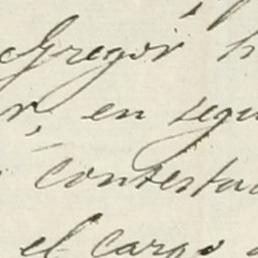 Gregor h
r, en segu
contestac
el cargo